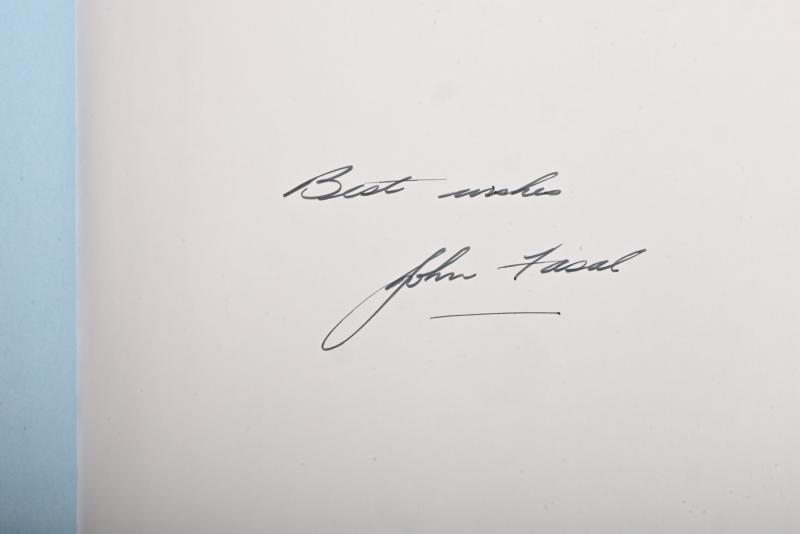 Best wishes
John Fasal